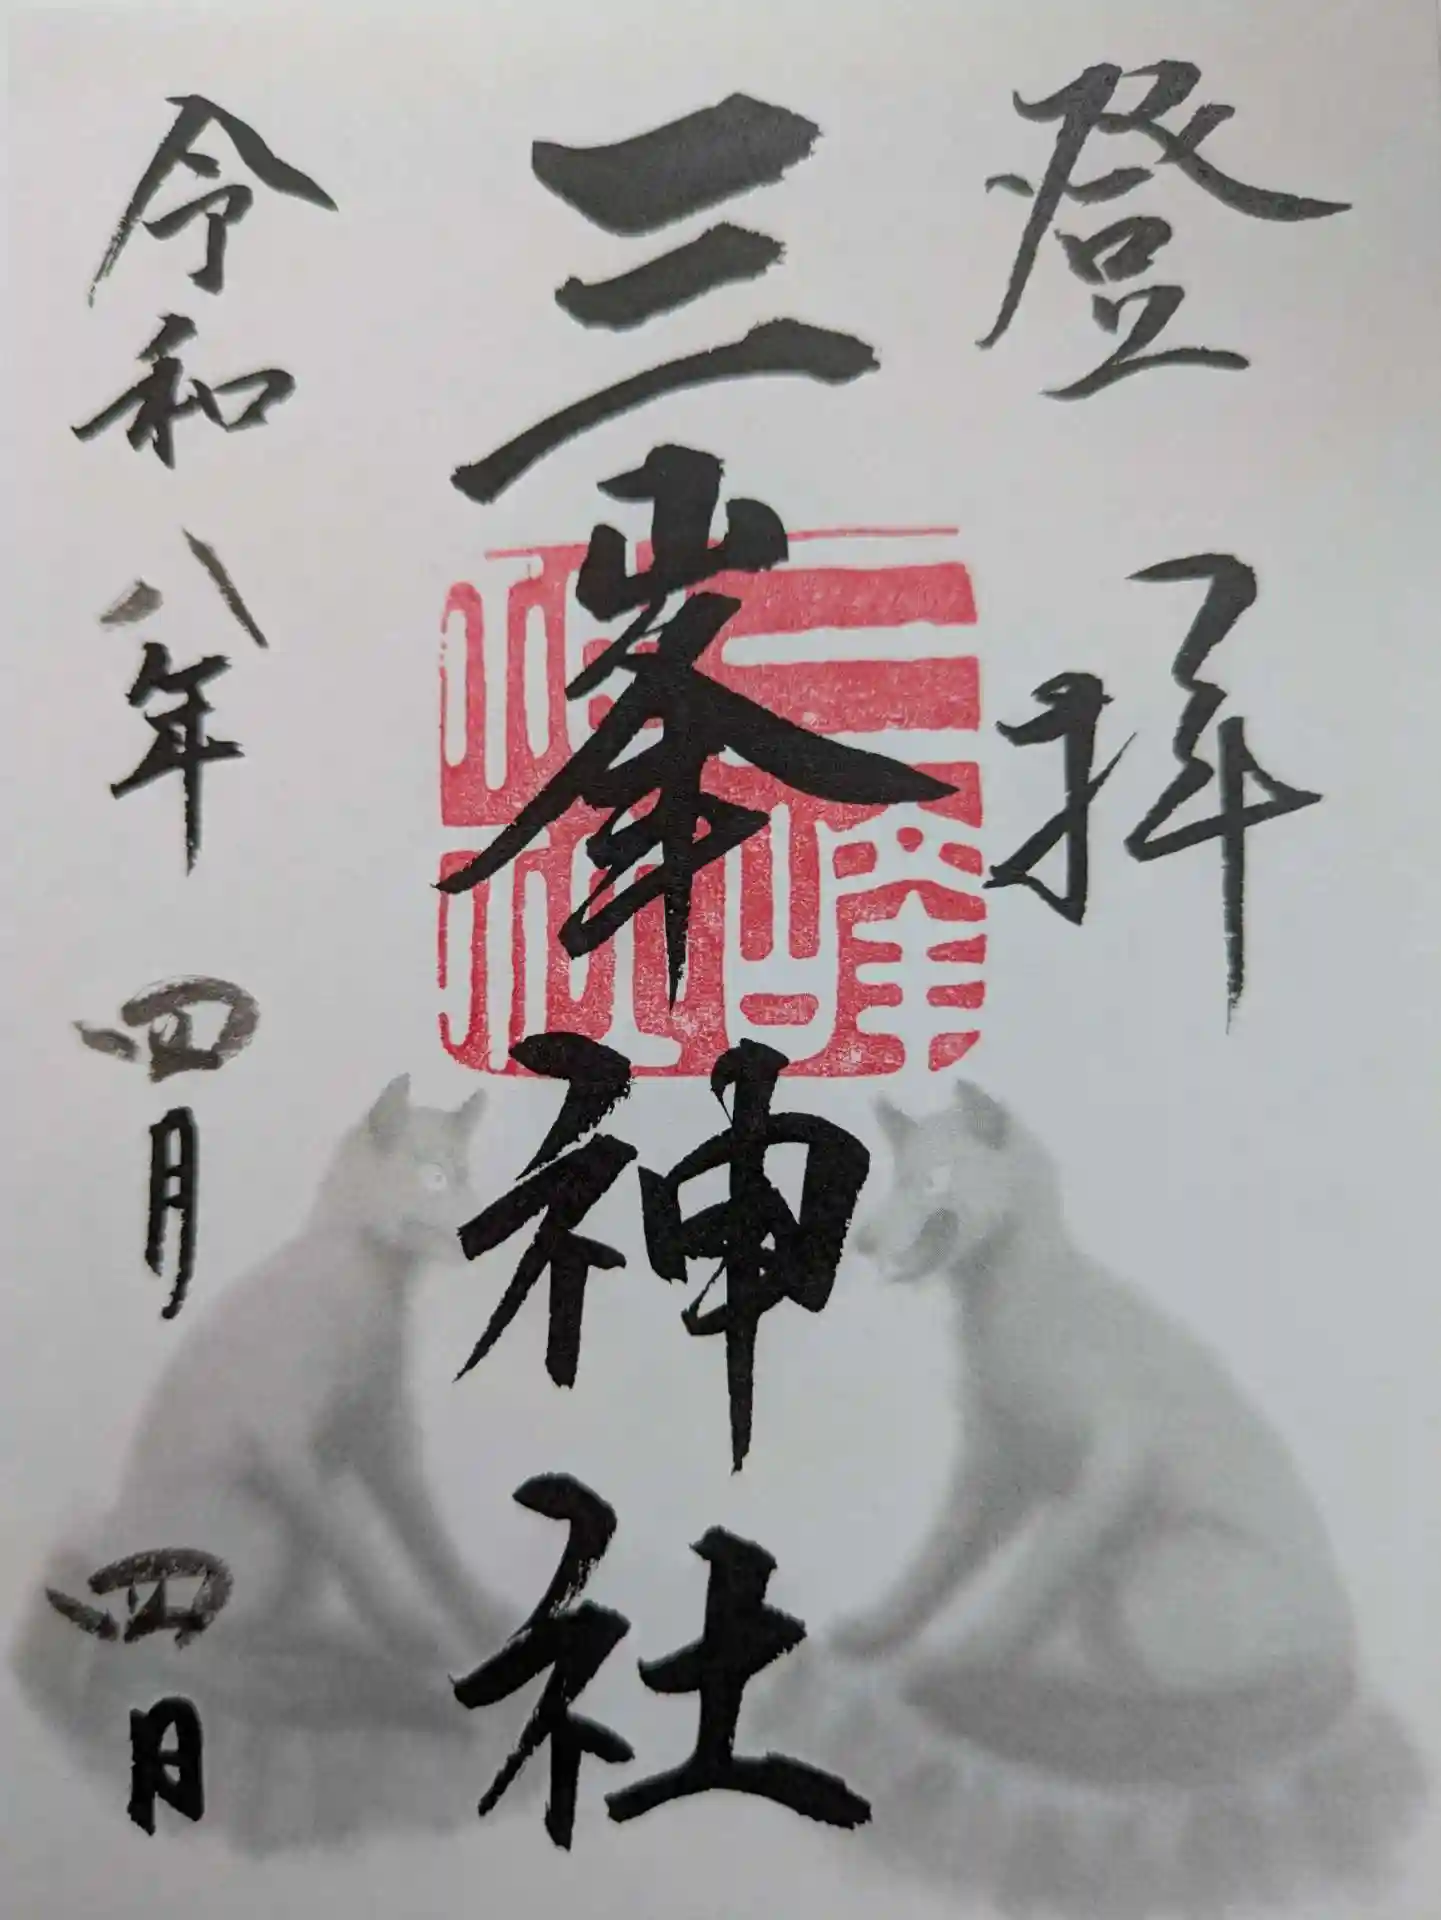 登拝
三峯神社
三峰神社
令和八年四月四日